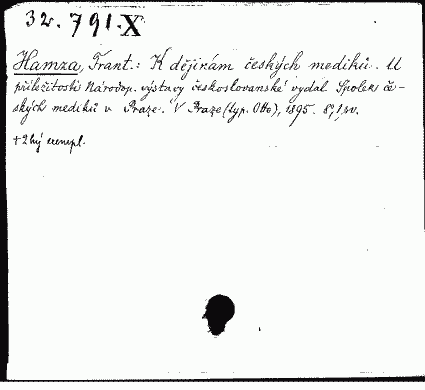 32.791.X
Hamza, Frant.: K dějinám českých mediků. U
příležitosti Národop. výstavy českoslovanské vydal Spolek če-
ských mediků v Praze. V Praze (typ. Otto), 1895. 8°, 1 sv.
+ 2hý exempl.